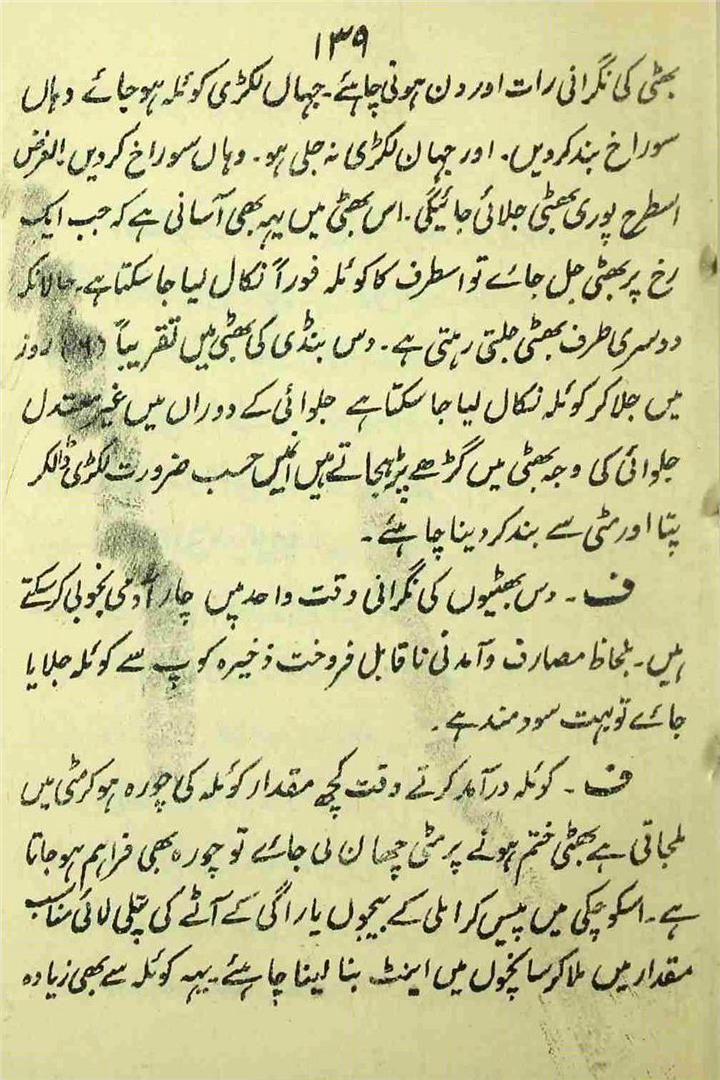 ۱۳۹
بھٹی کی نگرانی رات اور دن ہونی چاہئے۔ جہاں لکڑی کوئلہ ہو جائے وہاں
سوراخ بند کردیں۔ اور جہان لکڑی نہ جلی ہو۔ وہاں سوراخ کردیں الغرض
اسطرح پوری بھٹی جلائی جائیگی۔ اس بھٹی میں یہہ بھی آسانی ہے کہ جب ایک
رخ پر بھٹی جل جائے تو اسطرف کا کوئلہ فوراً نکال لیا جاسکتا ہے۔ حالانکہ
دوسری طرف بھٹی جلتی رہتی ہے۔ دس بنڈی کی بھٹی میں تقریباً (۶) روز
میں جلا کر کوئلہ نکال لیا جاسکتا ہے جلوائی کے دوران میں غیر معتدل
جلوائی کی وجہ بھٹی میں گڑھے پڑجاتے ہیں انہیں حسب ضرورت لکڑی ڈالکر
پتا اور مٹی سے بند کردینا چاہئے۔
ف۔ دس بھٹیوں کی نگرانی وقت واحد میں چار آدمی بخوبی کرسکتے
ہیں۔ بلحاظ مصارف و آمدنی ناقابل فروخت ذخیرہ کوپ سے کوئلہ جلایا
جائے تو بہت سودمند ہے۔
ف۔ کوئلہ درآمد کرتے وقت کچھ مقدار کوئلہ کی چورہ ہو کر مٹی میں
ملجاتی ہے بھٹی ختم ہونے پر مٹی چھان لی جائے تو چورہ بھی فراہم ہوجاتا
ہے۔ اسکو چکی میں پیس کر املی کے بیجوں یا راگی کے آٹے کی پتلی لائی مناسب
مقدار میں ملا کر سانچوں میں اینٹ بنا لینا چاہئے۔ یہہ کوئلہ سے بھی زیادہ